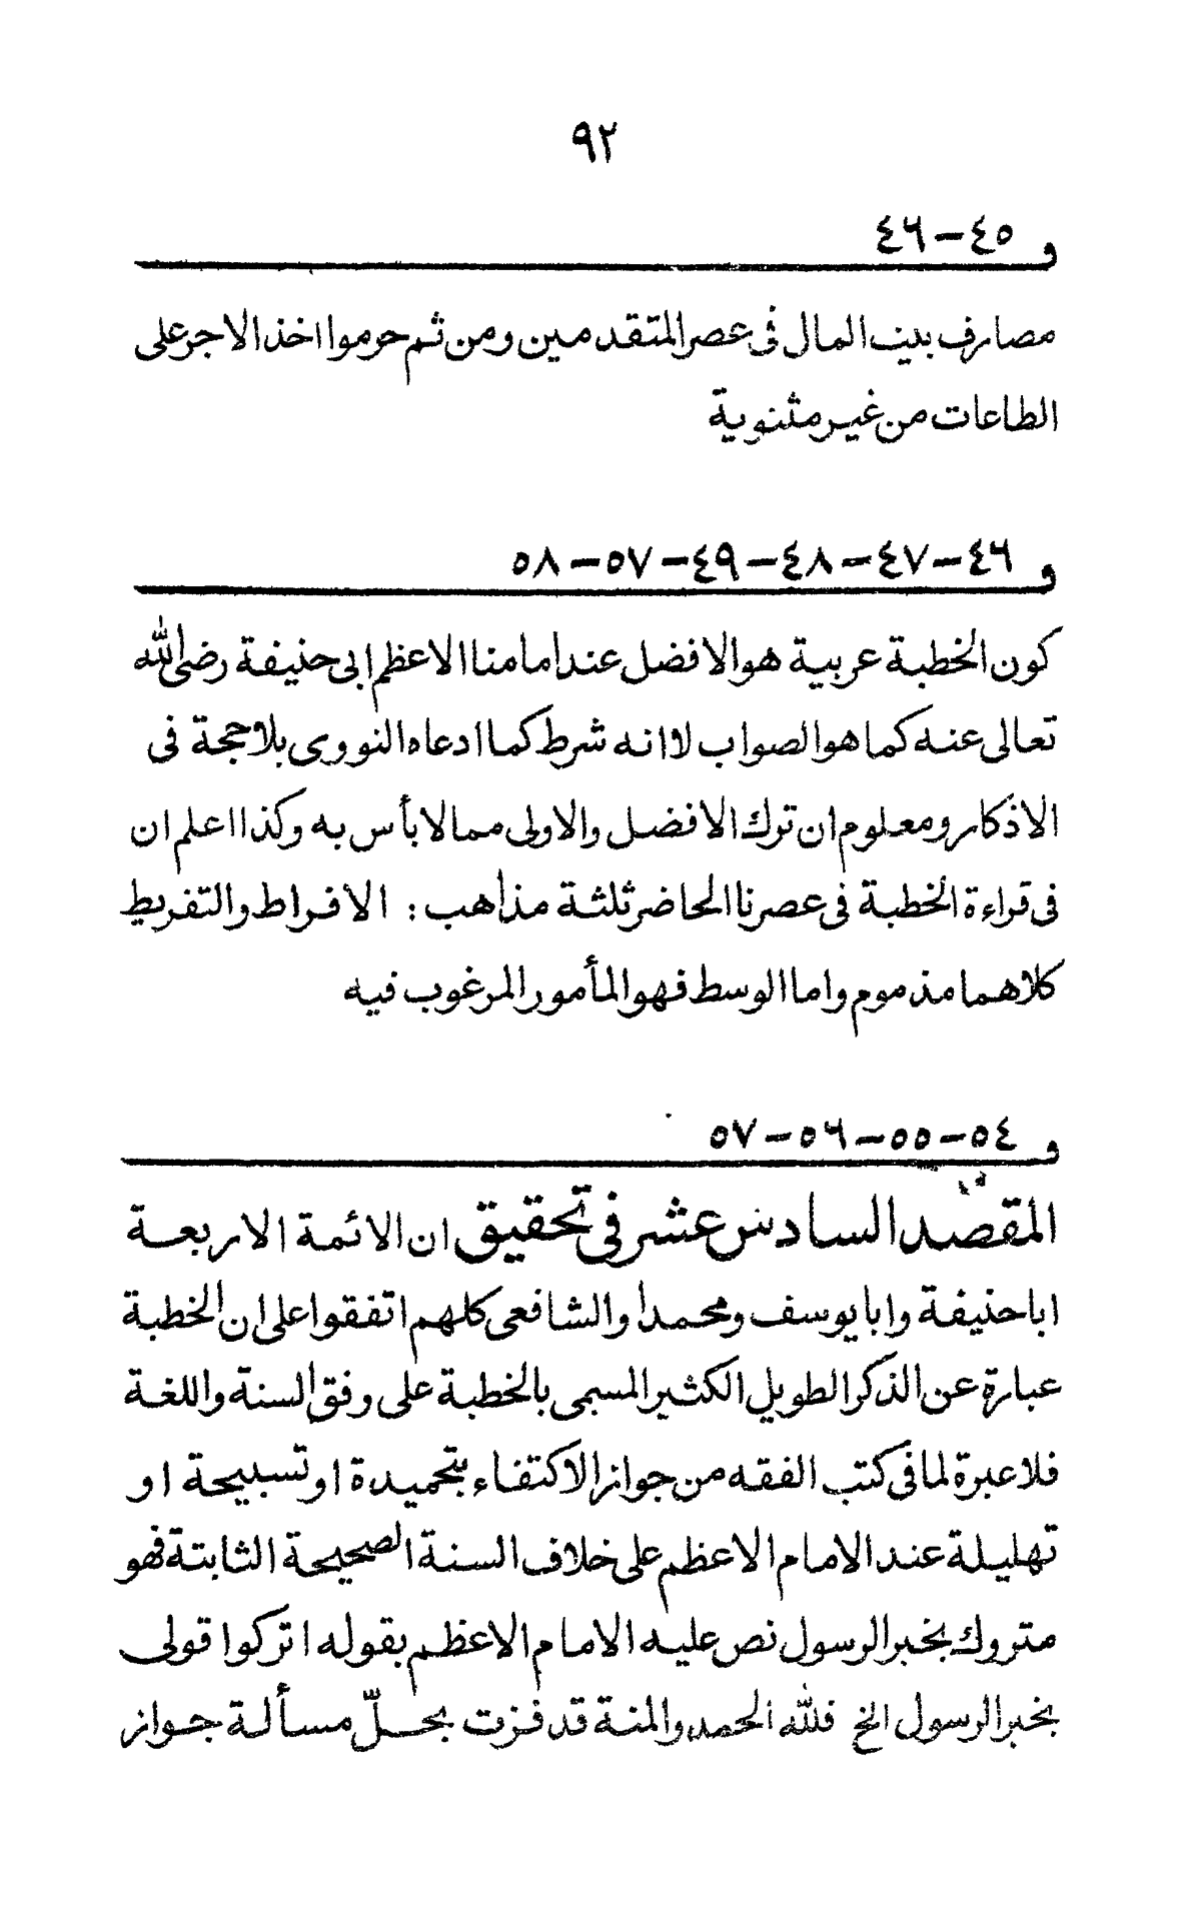 ٩٢
و ٤٥-٤٦
مصارف بيت المال فى عصر المتقدمين ومن ثم حرموا اخذ الاجر على
الطاعات من غير مثنوية
و ٤٦-٤٧-٤٨-٤٩-٥٧-٥٨
كون الخطبة عربية هو الافضل عند امامنا الاعظم ابى حنيفة رضى الله
تعالى عنه كما هو الصواب لا انه شرط كما ادعاه النووى بلا حجة فى
الاذكار ومعلوم ان ترك الافضل والاولى مما لا بأس به وكذا اعلم ان
فى قراءة الخطبة فى عصرنا الحاضر ثلثة مذاهب: الافراط والتفريط
كلاهما مذموم واما الوسط فهو المأمور المرغوب فيه
و ٥٤-٥٥-٥٦-٥٧
المقصد السادس عشر فى تحقيق ان الائمة الاربعة
ابا حنيفة وابا يوسف ومحمدا والشافعى كلهم اتفقوا على ان الخطبة
عبارة عن الذكر الطويل الكثير المسمى بالخطبة على وفق السنة واللغة
فلا عبرة لما فى كتب الفقه من جواز الاكتفاء بتحميدة او تسبيحة او
تهليلة عند الامام الاعظم على خلاف السنة الصحيحة الثابتة فهو
متروك بخبر الرسول نص عليه الامام الاعظم بقوله اتركوا قولى
بخبر الرسول الخ فلله الحمد والمنة قد فزت بحلّ مسألة جواز